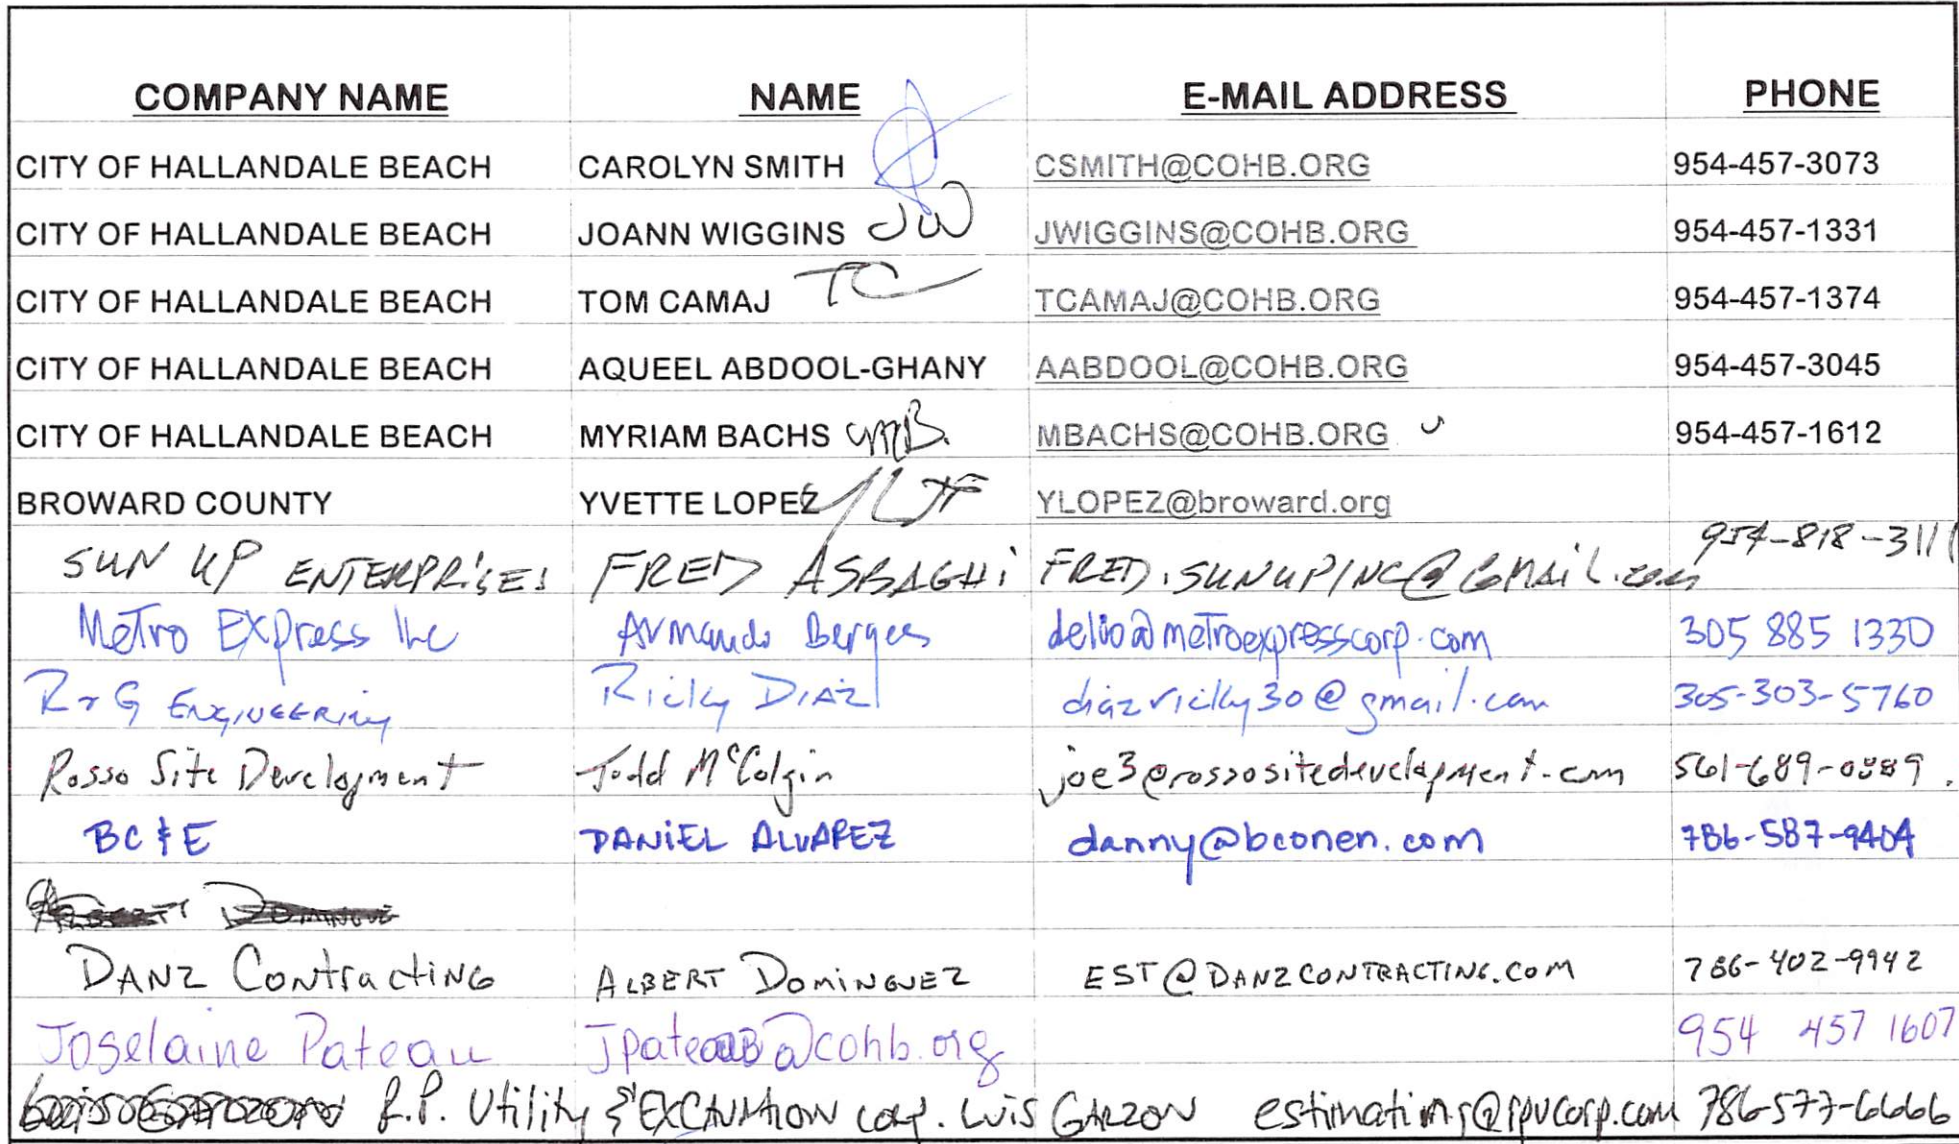 COMPANY NAME NAME E-MAIL ADDRESS PHONE
CITY OF HALLANDALE BEACH CAROLYN SMITH CSMITH@COHB.ORG 954-457-3073
CITY OF HALLANDALE BEACH JOANN WIGGINS JW JWIGGINS@COHB.ORG 954-457-1331
CITY OF HALLANDALE BEACH TOM CAMAJ TC TCAMAJ@COHB.ORG 954-457-1374
CITY OF HALLANDALE BEACH AQUEEL ABDOOL-GHANY AABDOOL@COHB.ORG 954-457-3045
CITY OF HALLANDALE BEACH MYRIAM BACHS MB. MBACHS@COHB.ORG 954-457-1612
BROWARD COUNTY YVETTE LOPEZ YLOPEZ@broward.org
SUN UP ENTERPRISES FRED ASBAGHi FRED.SUNUPINC@GMAiL.com 954-818-3111
Metro EXPress Inc Armando Berges delio@metroexpresscorp.com 305 885 1330
R+G ENGINEERing Ricky DIAZ diazricky30@gmail.com 305-303-5760
Rosso Site Development Todd McColgin joe3@rossositedevelopment.com 561-689-0889
BC & E DANiEL ALVAREZ danny@bconen.com 786-587-9404
DANZ ContractiNG ALBERT DOMiNGUEZ EST@DANZCONTRACTING.COM 786-402-9942
Joselaine Pateau @cohb.org 954 457 1607
R.P. Utility & EXCAVATION corp. LUIS GARZON estimating@rpucorp.com 786-577-6666